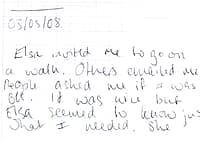 03/05/08.
Elsa invited me to go on
a walk. Others emailed me
People asked me if I was
ok. It was nice but
Elsa seemed to know jus
what I needed. She